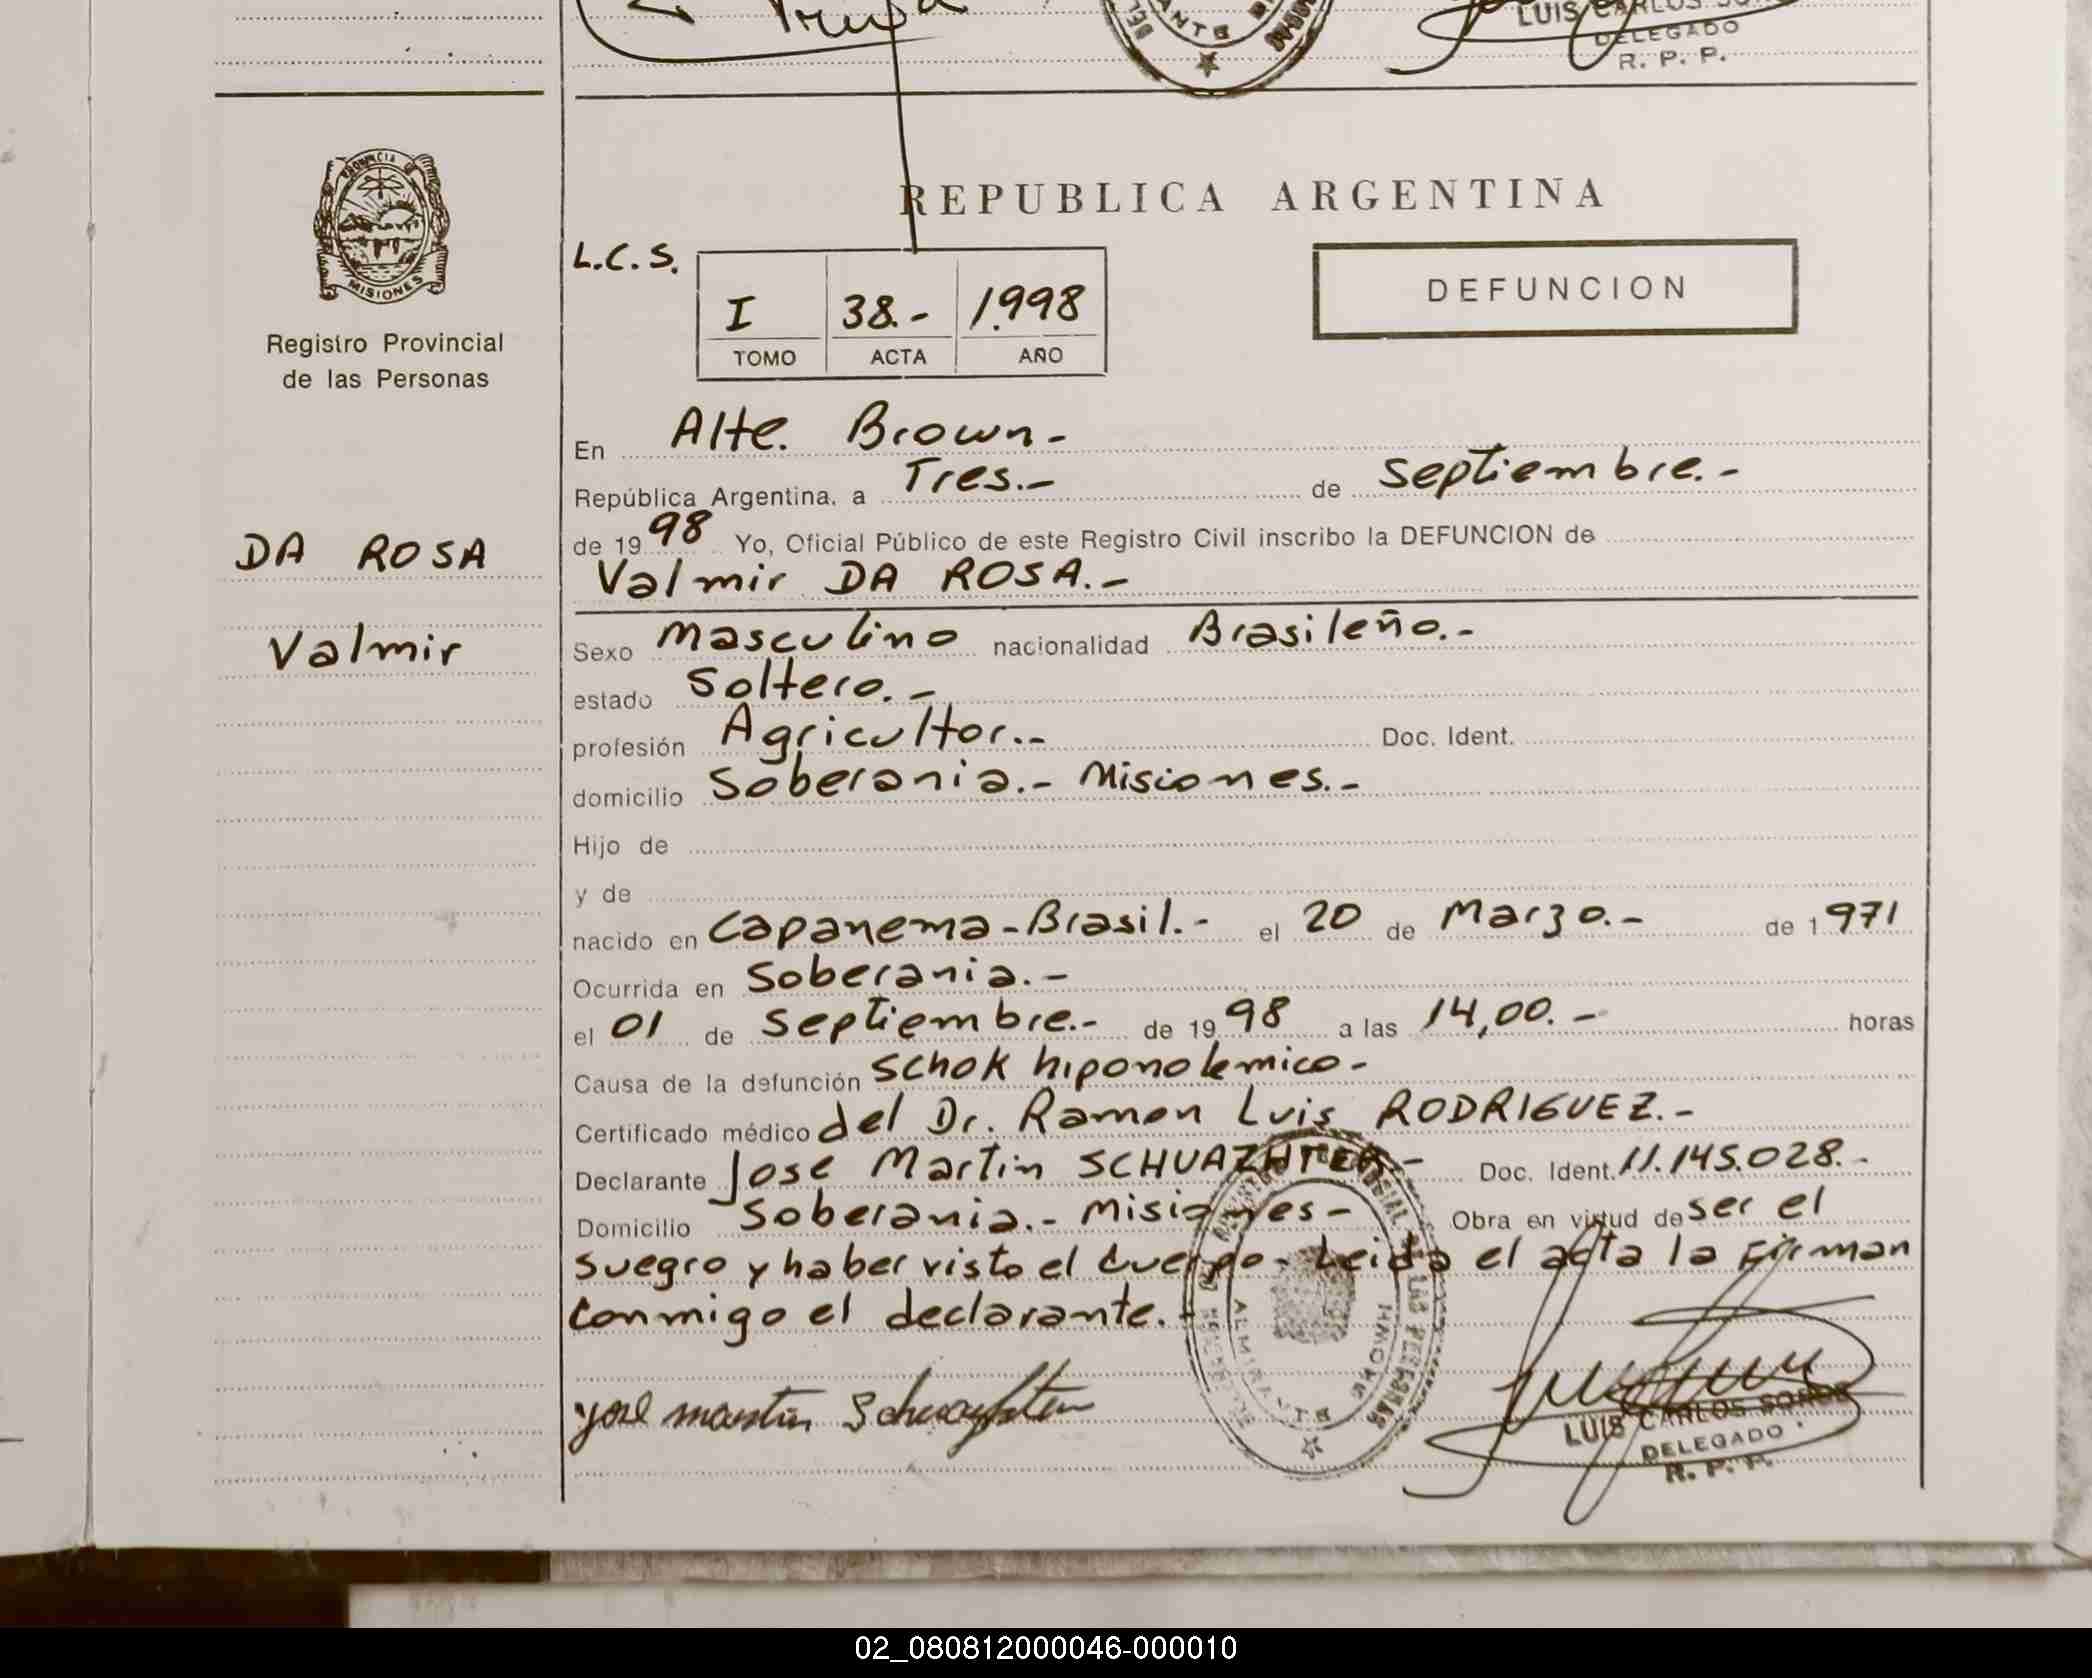 LUIS CARLOS
DELEGADO
R. P. P.
PROVINCIA
MISIONES
Registro Provincial
de las Personas
REPUBLICA ARGENTINA
L.C.S.
I 38.- 1.998
TOMO ACTA AÑO
DEFUNCION
DA ROSA
Valmir
En Alte. Brown.-
República Argentina, a Tres.- de Septiembre.-
de 1998 Yo, Oficial Público de este Registro Civil inscribo la DEFUNCION de
Valmir DA ROSA.-
Sexo Masculino nacionalidad Brasileño.-
estado Soltero.-
profesión Agricultor.- Doc. Ident.
domicilio Soberania.- Misiones.-
Hijo de
y de
nacido en Capanema-Brasil.- el 20 de Marzo.- de 1971
Ocurrida en Soberania.-
el 01 de Septiembre.- de 1998 a las 14,00.- horas
Causa de la defunción Schok hiponolemico-
Certificado médico del Dr. Ramon Luis RODRIGUEZ.-
Declarante Jose Martin SCHUAZHTER.- Doc. Ident. 11.145.028.-
Domicilio Soberania.- Misiones- Obra en virtud de ser el
suegro y haber visto el Cuerpo- Leida el acta la Firman
Conmigo el declarante.-
ALMIRANTE BROWN
LUIS CARLOS
DELEGADO
R. P. P.
02_080812000046-000010